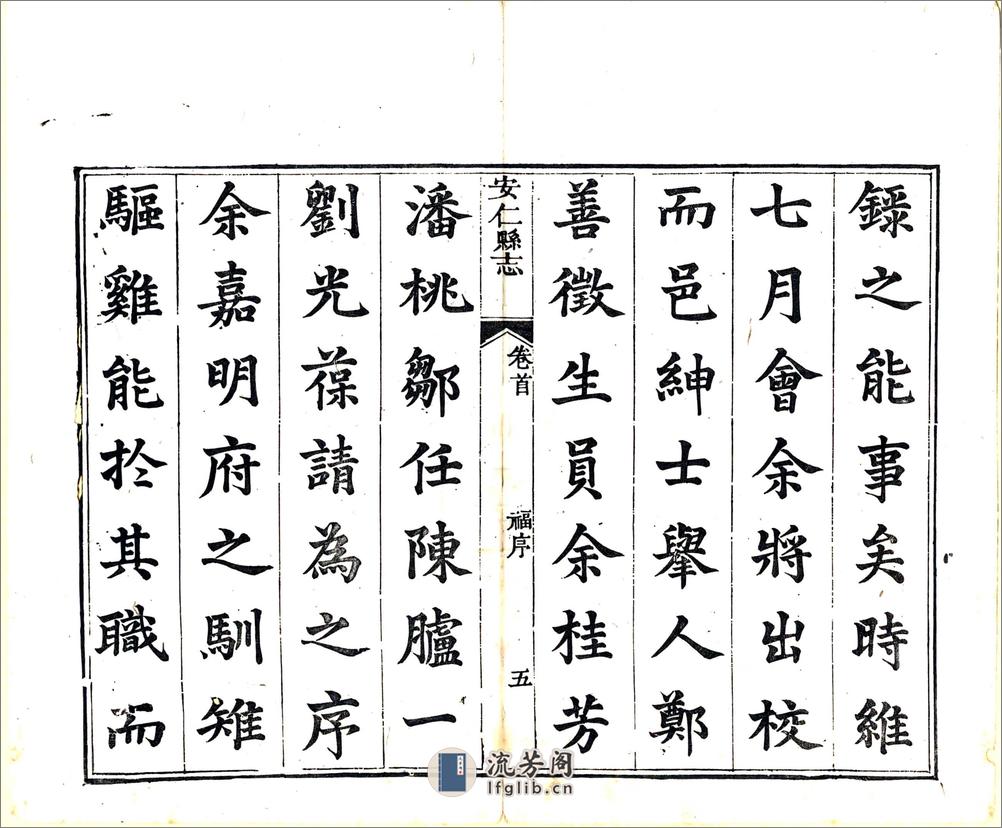 錄之能事矣時維
七月會余將出校
而邑紳士舉人鄭
善徵生員余桂芳
安仁縣志
卷首
福序
五
潘桃鄒任陳臚一
劉光葆請為之序
余嘉明府之馴雉
驅雞能於其職而
流芳阁
lfglib.cn